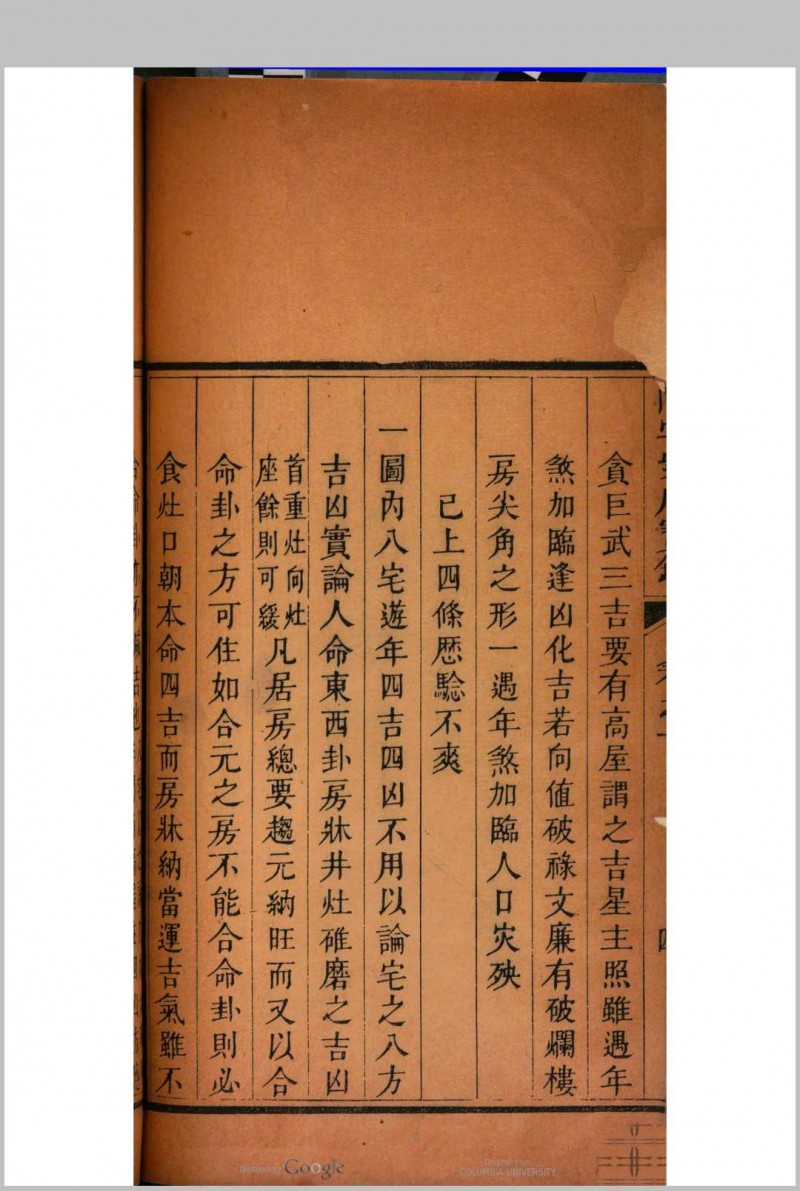 貪巨武三吉要有高屋謂之吉星主照雖遇年
煞加臨逢凶化吉若向值破祿文廉有破爛樓
房尖角之形一遇年煞加臨人口灾殃
已上四條歷騐不爽
一圖內八宅遊年四吉四凶不用以論宅之八方
吉凶實論人命東西卦房牀井灶碓磨之吉凶
首重灶向灶
座餘則可緩
凡居房總要趨元納旺而又以合
命卦之方可住如合元之房不能合命卦則必
食灶口朝本命四吉而房牀納當運吉氣雖不
四
Digitized by Google
Original from
COLUMBIA UNIVERSITY